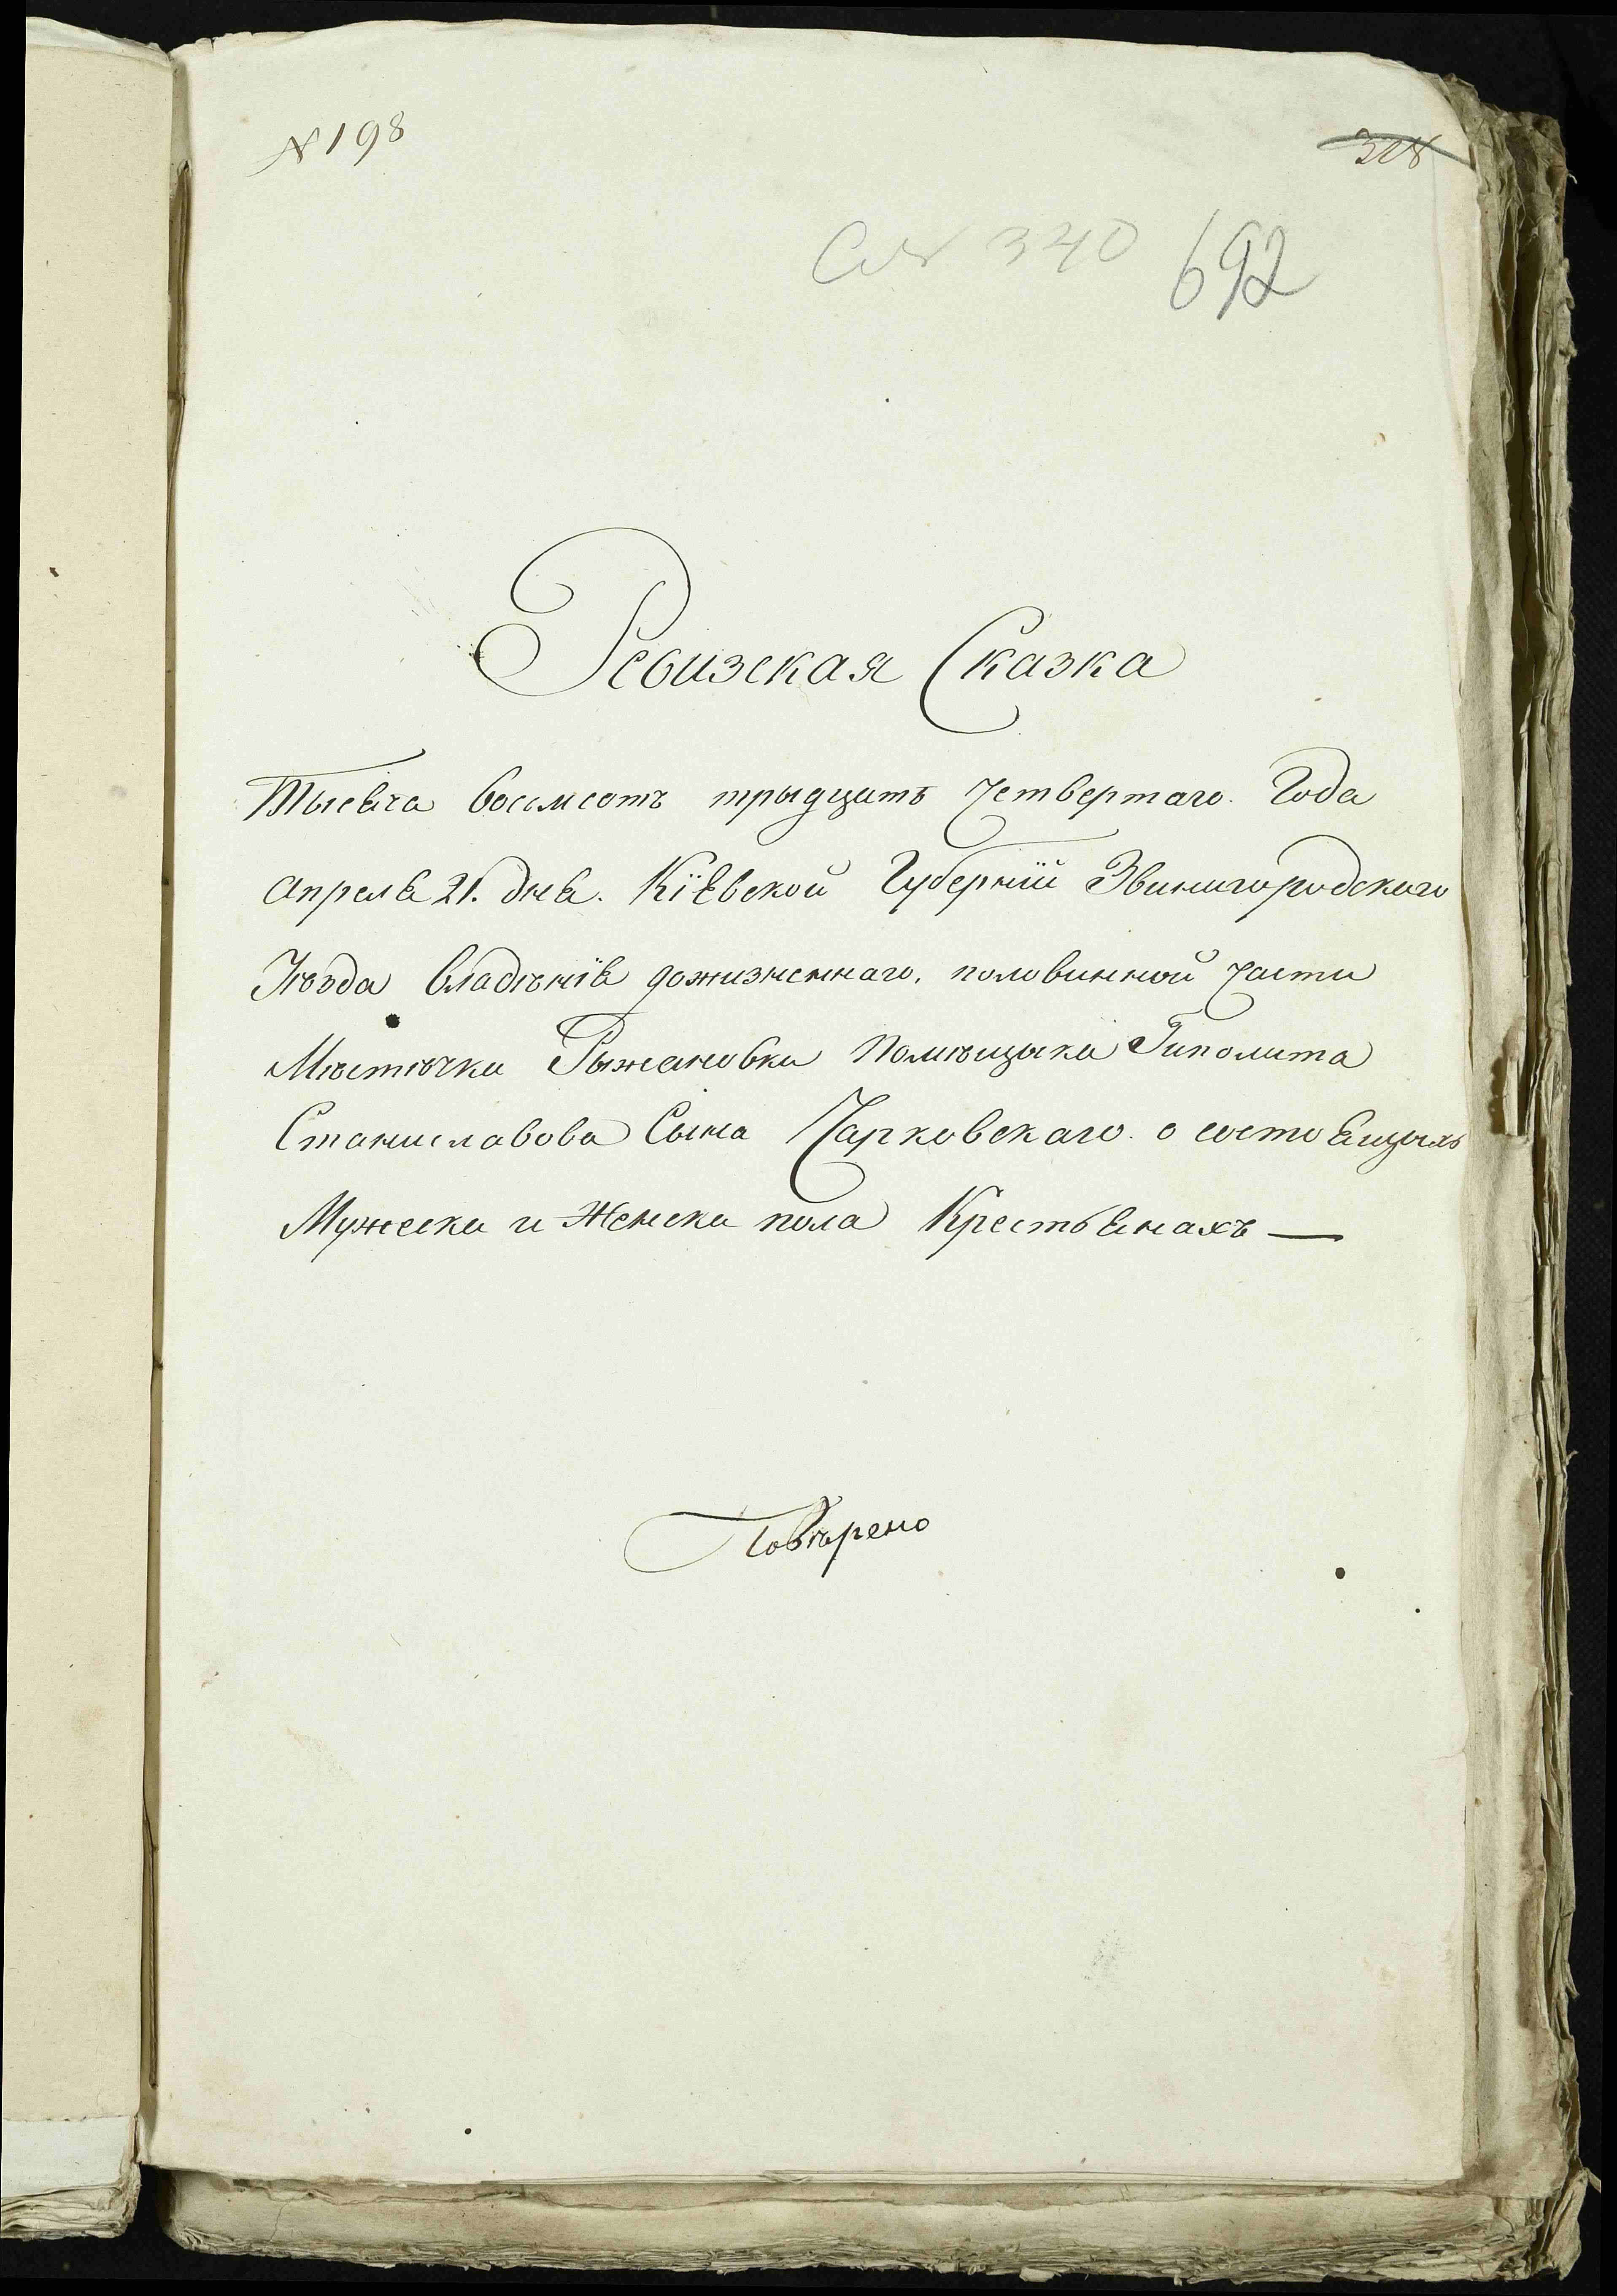 № 198
328
692
340
Ревизская Сказка
Тысяча восемсотъ трыдцать Четвертаго Года
Апреля 21. дня. Кіевской Губерніи Звинигородскаго
Уѣзда владѣнія дожизненнаго. половинной Части
Мѣстѣчка Рыжановки Помѣщыка Гиполита
Станиславова Сына Чарковскаго о состоящыхъ
Мужеска и Женска пола Крестьянахъ —
Повѣрено